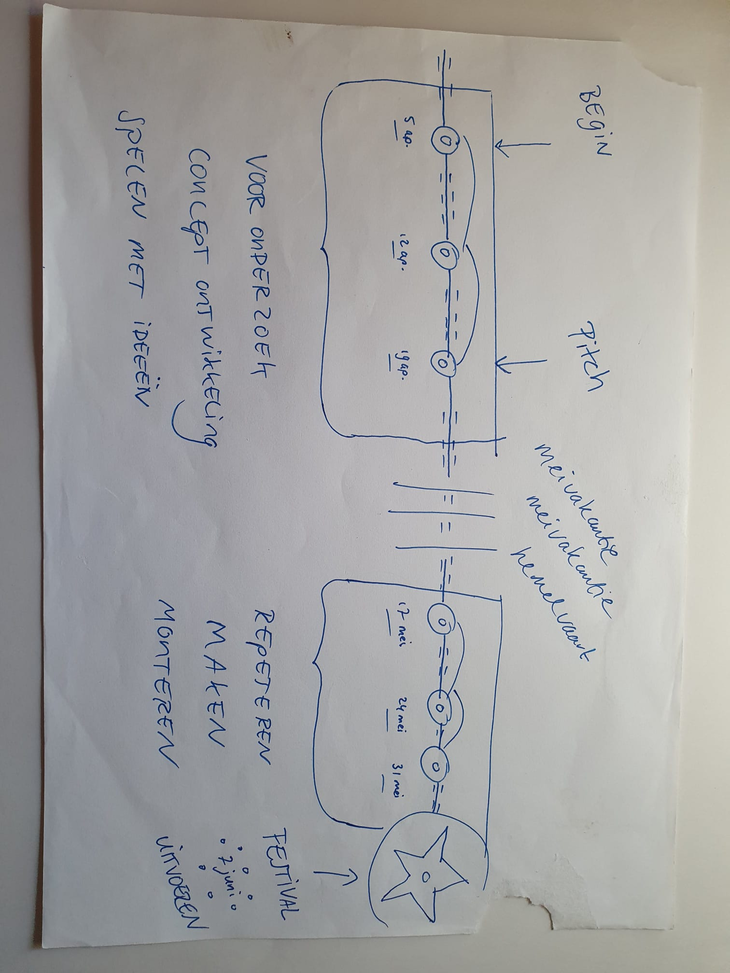 BEGIN
Pitch
meivakantie
meivakantie
hemelvaart
5 ap.
12 ap.
19 ap.
17 mei
24 mei
31 mei
VOORONDERZOEK
CONCEPT ONTWIKKELING
SPELEN MET IDEEËN
REPETEREN
MAKEN
MONTEREN
FESTIVAL
7 juni
UITVOEREN